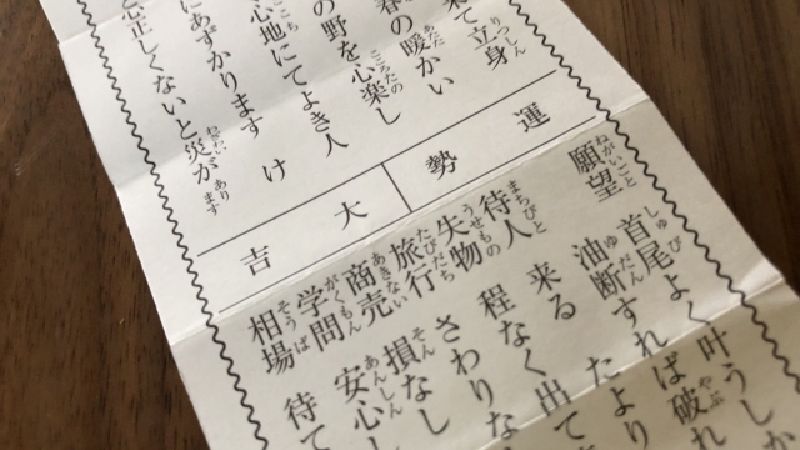 て立身
春の暖かい
の野を心楽し
心地にてよき人
にあずかりますけ
心正しくないと災があります
運勢 大吉
願望 首尾よく叶うしか
油断すれば破れ
待人 来る たより
失物 程なく出て
旅行 さわりな
商売 損なし
学問 安心し
相場 待て